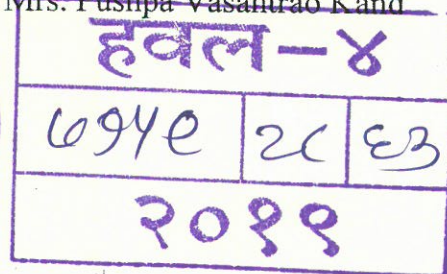 Mrs. Pushpa Vasantrao Kand
हवल-४
७१५९ २८ ६३
२०१९